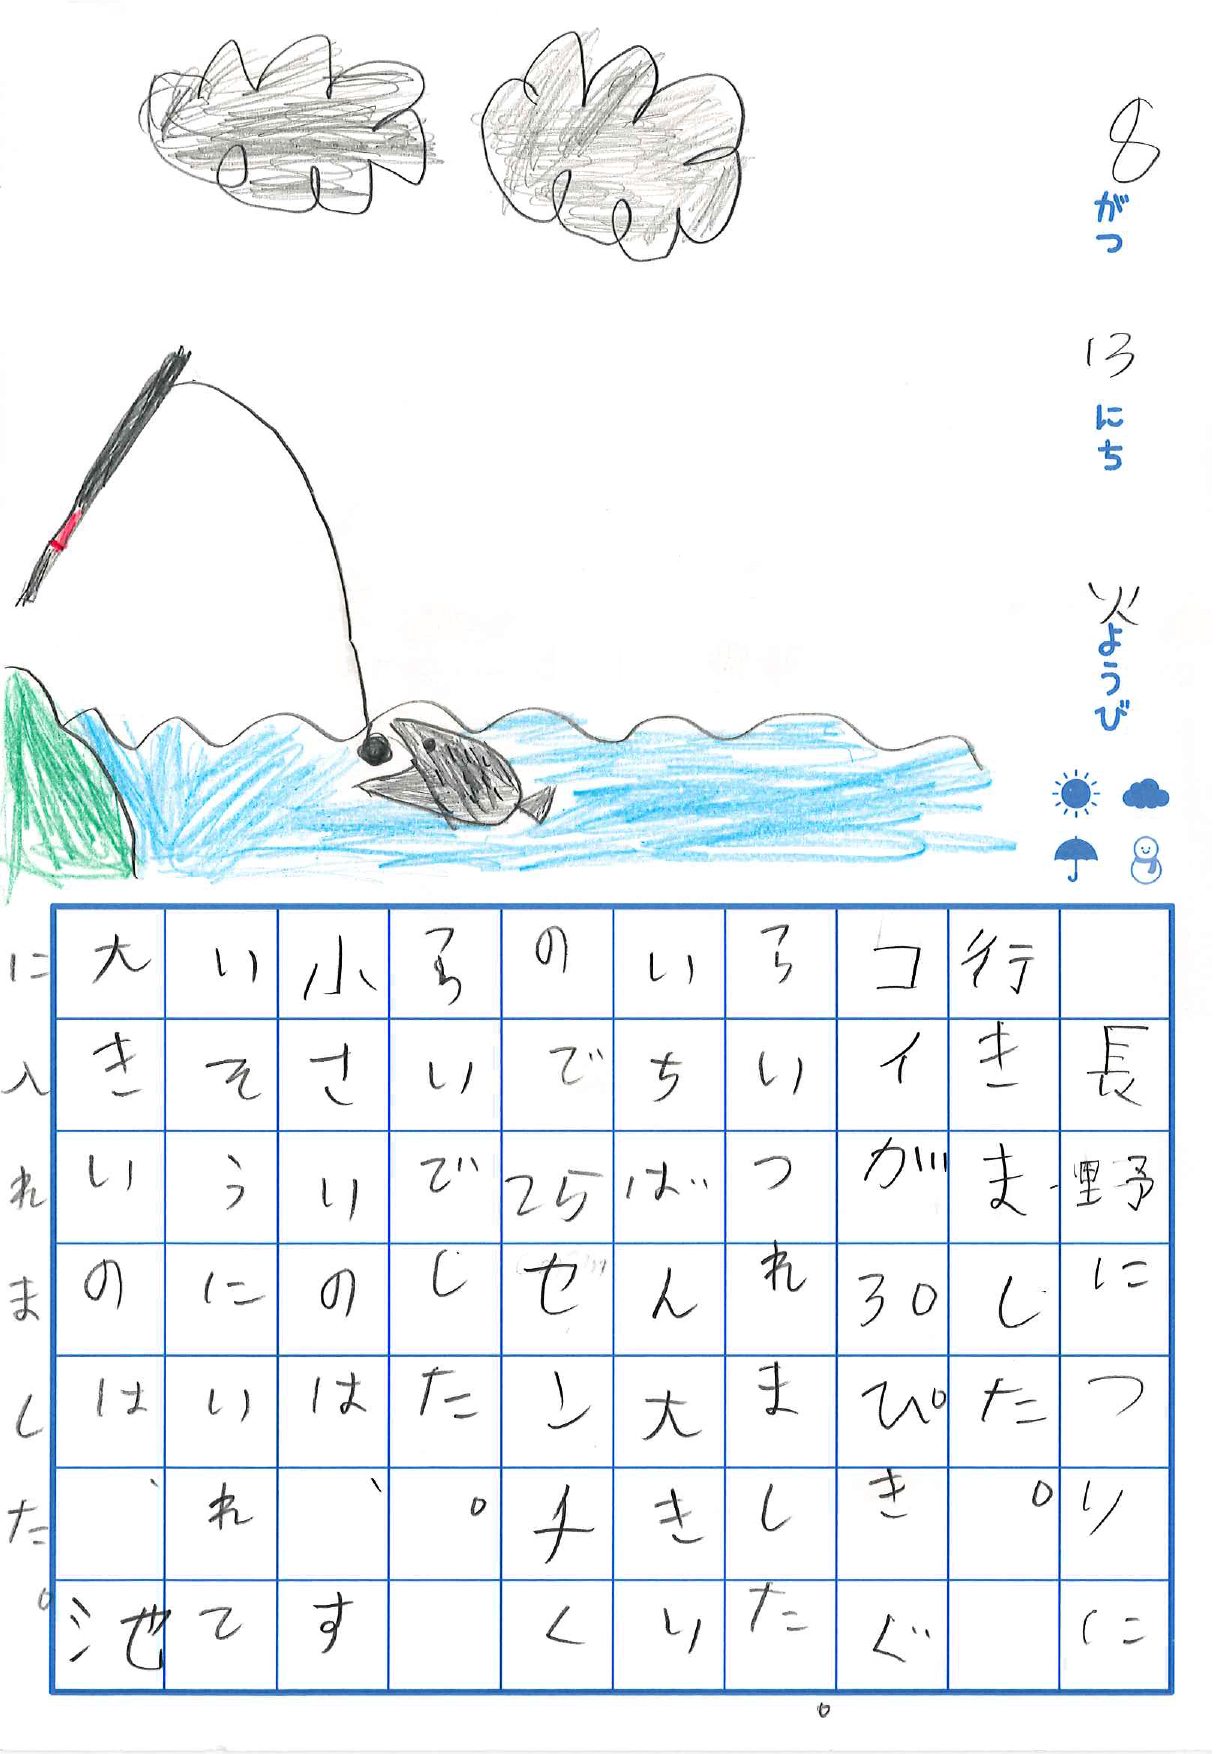 8がつ 13にち 火ようび
長野につりに
行きました。
コイが30ぴきぐ
らいつれました。
いちばん大きい
のでで25センチく
らいでした。
小さいのは、す
いそうにいれて
大きいのは、池
に入れました。